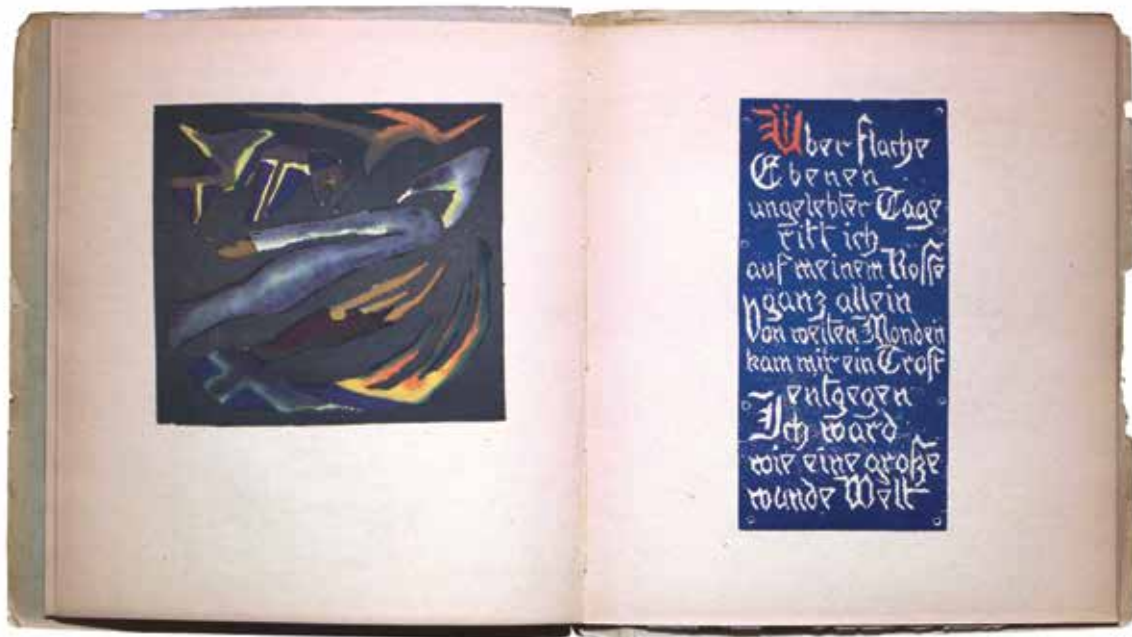 Über flache
Ebenen
ungelebter Tage
ritt ich
auf meinem Rosse
ganz allein
Von weiten Monden
kam mir ein Trost
entgegen
Ich ward
wie eine große
wunde Welt